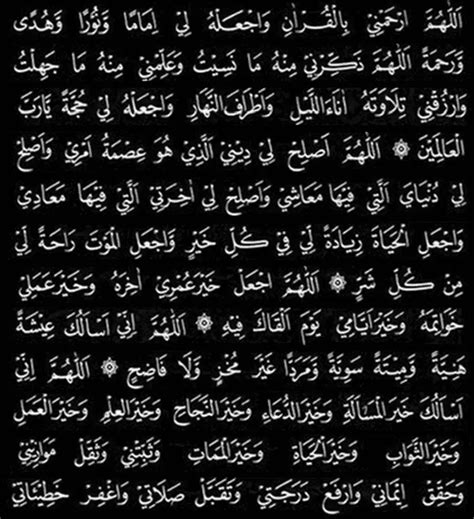 اَللّٰهُمَّ ارْحَمْنِيْ بِالْقُرْاٰنِ وَاجْعَلْهُ لِيْ اِمَامًا وَنُوْرًا وَهُدًى
وَرَحْمَةً اَللّٰهُمَّ ذَكِّرْنِيْ مِنْهُ مَا نَسِيْتُ وَعَلِّمْنِيْ مِنْهُ مَا جَهِلْتُ
وَارْزُقْنِيْ تِلَاوَتَهُ اٰنَاءَ اللَّيْلِ وَاَطْرَافَ النَّهَارِ وَاجْعَلْهُ لِيْ حُجَّةً يَارَبَّ
الْعَالَمِيْنَ ۞ اَللّٰهُمَّ اَصْلِحْ لِيْ دِيْنِيَ الَّذِيْ هُوَ عِصْمَةُ اَمْرِيْ وَاَصْلِحْ
لِيْ دُنْيَايَ الَّتِيْ فِيْهَا مَعَاشِيْ وَاَصْلِحْ لِيْ اٰخِرَتِيْ الَّتِيْ فِيْهَا مَعَادِيْ
وَاجْعَلِ الْحَيَاةَ زِيَادَةً لِيْ فِيْ كُلِّ خَيْرٍ وَاجْعَلِ الْمَوْتَ رَاحَةً لِيْ
مِنْ كُلِّ شَرٍّ ۞ اَللّٰهُمَّ اجْعَلْ خَيْرَ عُمْرِيْ اٰخِرَهُ وَخَيْرَ عَمَلِيْ
خَوَاتِمَهُ وَخَيْرَ اَيَّامِيْ يَوْمَ اَلْقَاكَ فِيْهِ ۞ اَللّٰهُمَّ اِنِّيْ اَسْأَلُكَ عِيْشَةً
هَنِيَّةً وَمِيْتَةً سَوِيَّةً وَمَرَدًّا غَيْرَ مُخْزٍ وَلَا فَاضِحٍ ۞ اَللّٰهُمَّ اِنِّيْ
اَسْأَلُكَ خَيْرَ الْمَسْأَلَةِ وَخَيْرَ الدُّعَاءِ وَخَيْرَ النَّجَاحِ وَخَيْرَ الْعِلْمِ وَخَيْرَ الْعَمَلِ
وَخَيْرَ الثَّوَابِ وَخَيْرَ الْحَيَاةِ وَخَيْرَ الْمَمَاتِ وَثَبِّتْنِيْ وَثَقِّلْ مَوَازِيْنِيْ
وَحَقِّقْ اِيْمَانِيْ وَارْفَعْ دَرَجَتِيْ وَتَقَبَّلْ صَلَاتِيْ وَاغْفِرْ خَطِيْئَاتِيْ